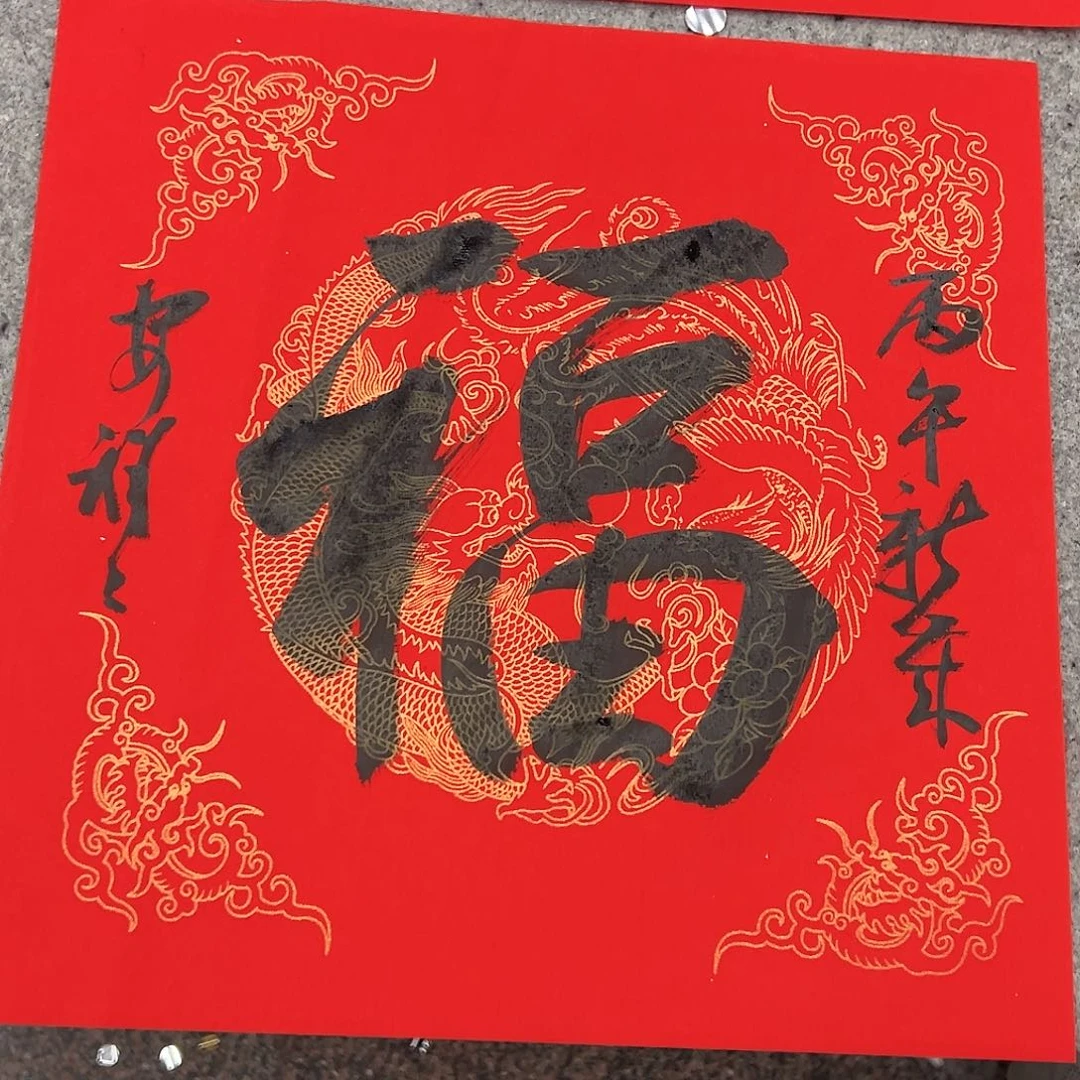 丙午新年
福
安祥